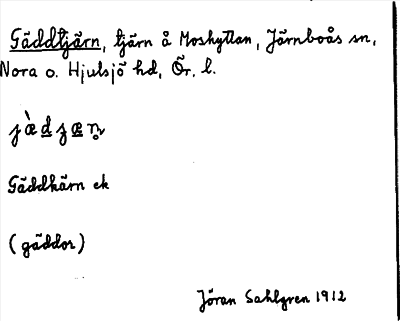 Gäddtjärn, tjärn å Moshyttan, Järnboås sn,
Nora o. Hjulsjö hd, Ör. l.
Gäddkärn ek
(gäddor)
Jöran Sahlgren 1912